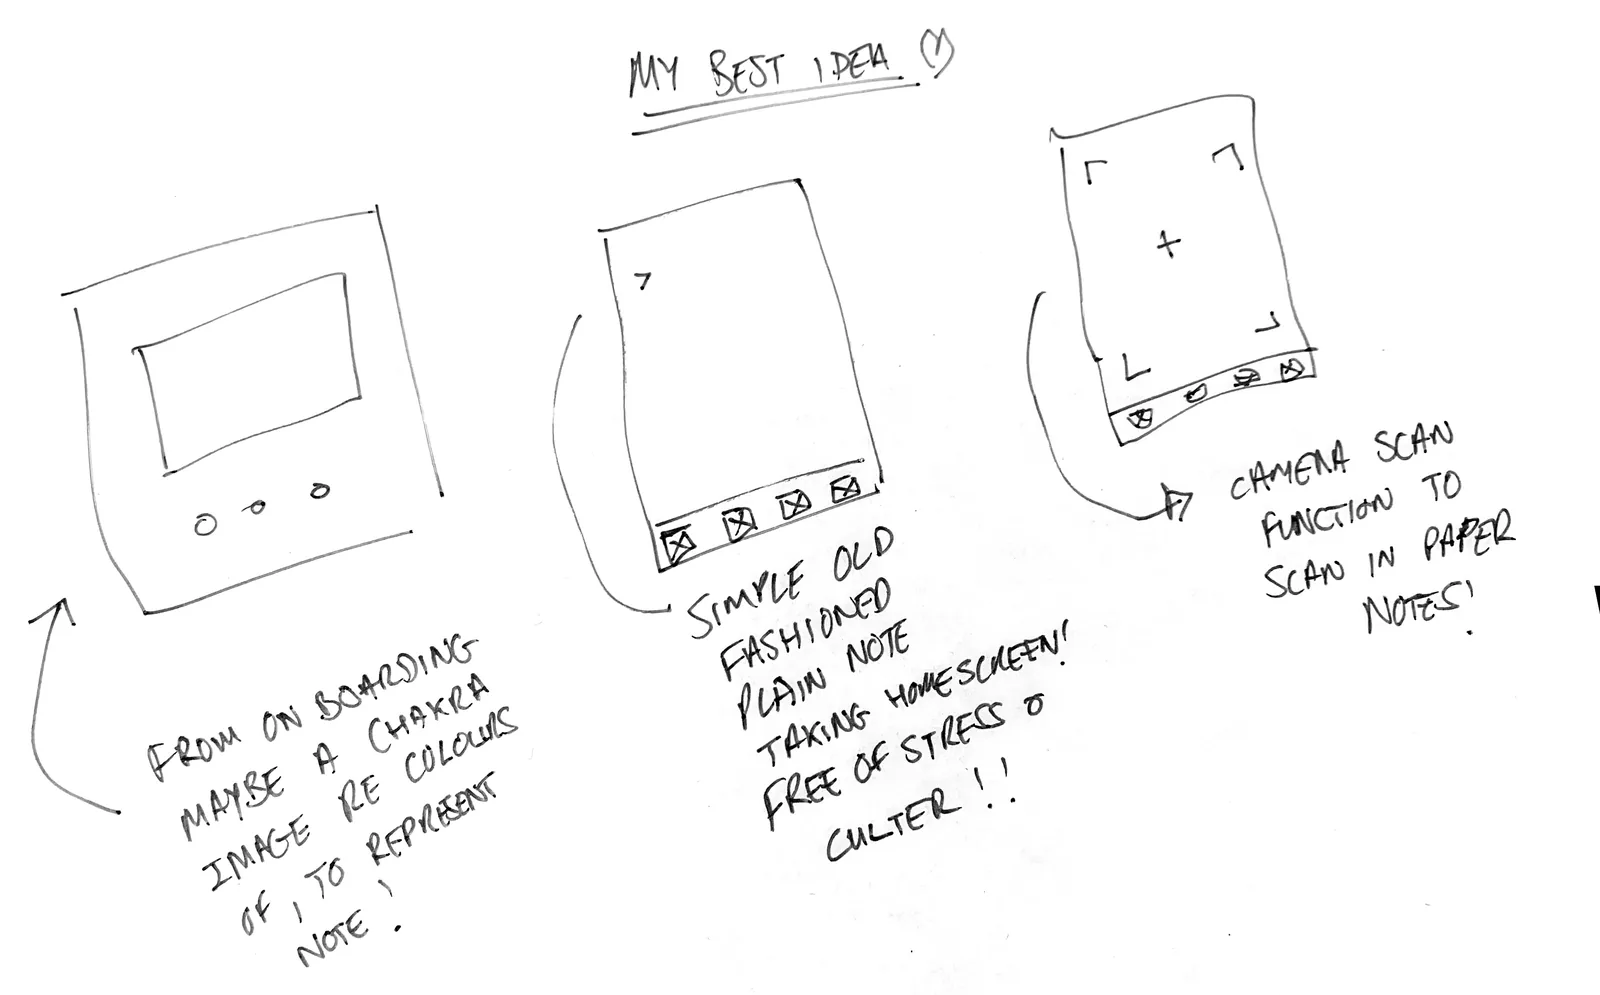 MY BEST IDEA
FROM ON BOARDING
MAYBE A CHAKRA
IMAGE RE COLOURS
OF , TO REPRESENT
NOTE !
SIMPLE OLD
FASHIONED
PLAIN NOTE
TAKING HOMESCREEN!
FREE OF STRESS &
CULTER !!
CAMERA SCAN
FUNCTION TO
SCAN IN PAPER
NOTES!